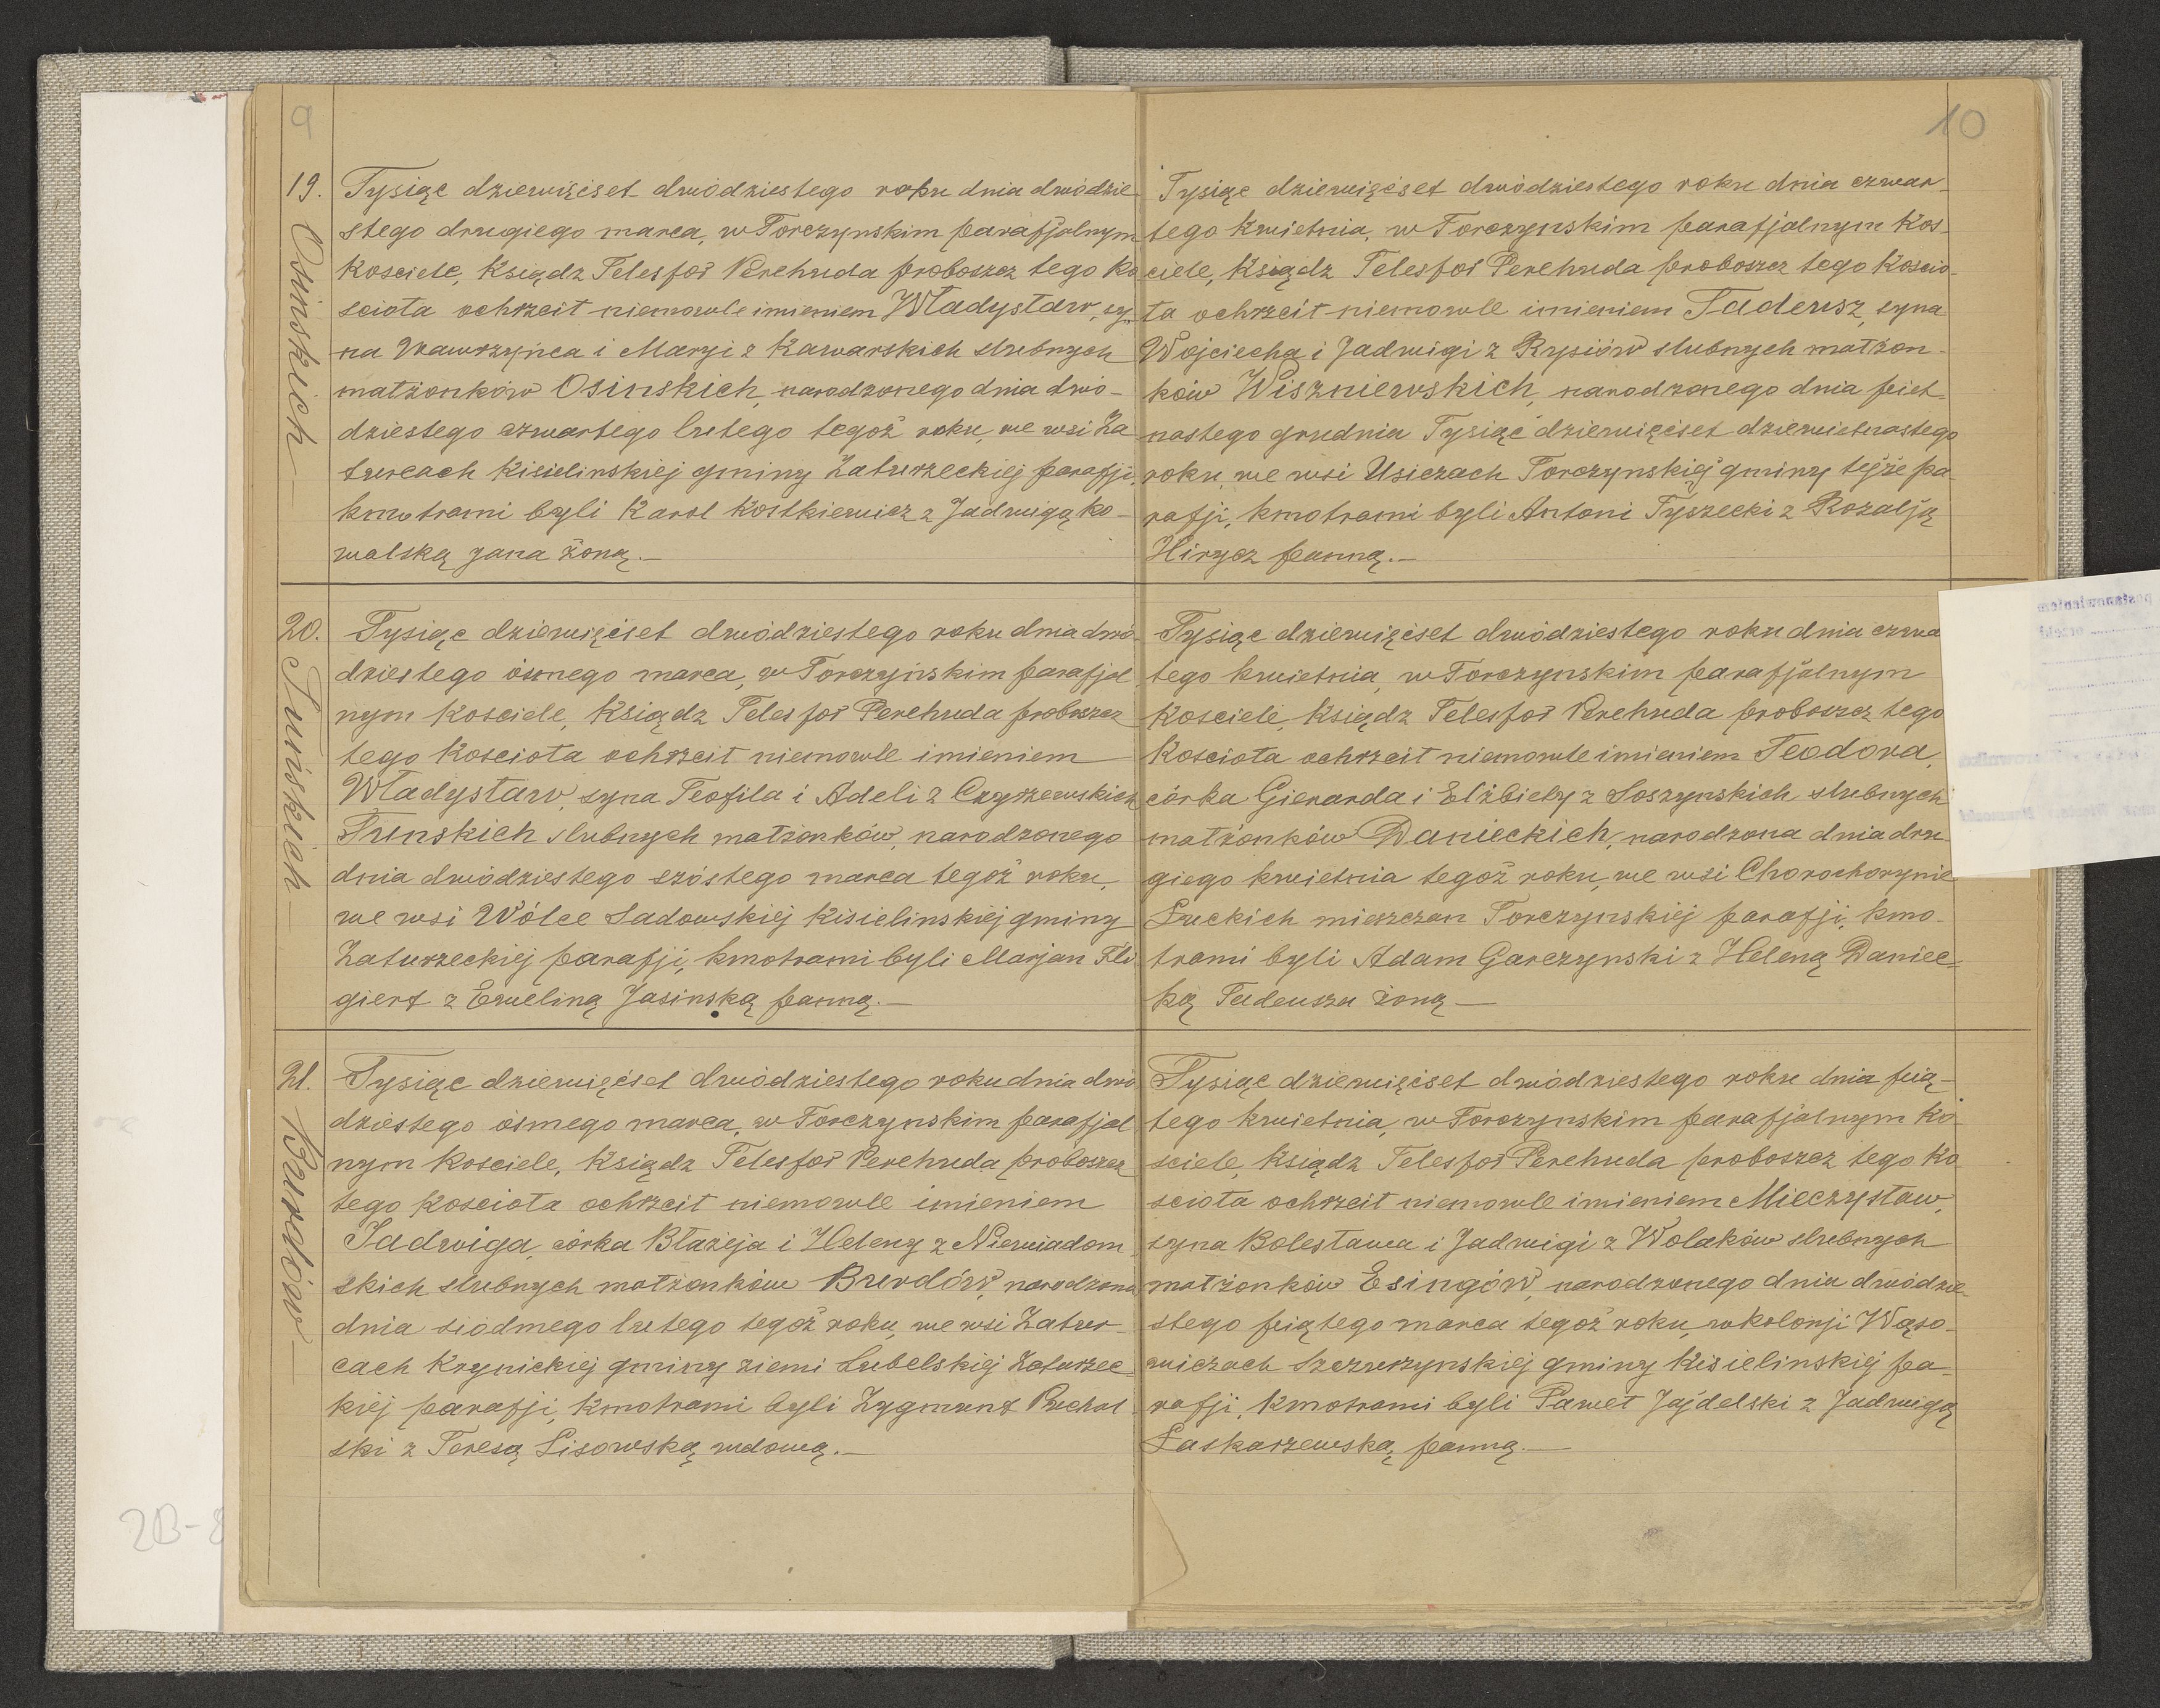 9
19.
Osinskich
Tysiąc dziewięćset dwódziestego roku dnia dwódzie
stego drugiego marca, w Torczynskim parafjalnym
Kosciele, Ksiądz Telesfor Perehuda proboszcz tego Ko
sciola ochrzcit niemowle imieniem Władysław, sy
na Wawrzyńca i Maryi z Kawarskich slubnych
matżonków Osinskich, narodzonego dnia dwó-
dziestego czwartego lutego tegoż roku, we wsi Za
turcach Kisielinskiej gminy Zaturzeckiej parafji,
kmotrami byli Karol Kostkiewicz z Jadwigą Ko-
walską Jana żoną.—
20.
Tunskich
Tysiąc dziewięćset dwódziestego roku dnia dwó
dziestego ósmego marca, w Torczyńskim parafjal
nym Kosciele, Ksiądz Telesfor Perehuda proboszcz
tego Kosciota ochrzcit niemowle imieniem
Władysław, syna Teofila i Adeli z Czyżewskich
Tunskich slubnych matżonków, narodzonego
dnia dwódziestego szóstego marca tegoż roku,
we wsi Wólce Sadowskiej Kisielinskiej gminy
Zaturzeckiej parafji, kmotrami byli Marjan Fli
giert z Eweliną Jasinską panną.—
21.
Burdów
Tysiąc dziewięćset dwódziestego roku dnia dwó
dziestego ósmego marca, w Torczynskim parafjal
nym Kosciele, Ksiądz Telesfor Perehuda proboszcz
tego Kosciota ochrzcit niemowle imieniem
Jadwiga, córka Błażeja i Heleny z Niewiadom
skich slubnych matżonków Burdów, narodzona
dnia siódmego lutego tegoż roku, we wsi Zatur-
cach Krynickiej gminy ziemi Lubelskiej Zaturzec
kiej parafji, kmotrami byli Zygmunt Puchal
ski z Teresą Lisowską wdową.—
10
Tysiąc dziewięćset dwódziestego roku dnia czwar-
tego kwietnia, w Torczynskim parafjalnym Kos-
ciele, Ksiądz Telesfor Perehuda proboszcz tego Koscio-
ta ochrzcit niemowle imieniem Tadeusz, syna
Wojciecha i Jadwigi z Rysiów slubnych matżon-
ków Wiszniewskich, narodzonego dnia piet-
nastego grudnia Tysiąc dziewięćset dziewietnastego
roku, we wsi Usiczach Torczynskiej gminy tejże pa-
rafji, kmotrami byli Antoni Tyszecki z Rozalją
Hirycz panną.—
Tysiąc dziewięćset dwódziestego roku dnia czwa
tego kwietnia, w Torczynskim parafjalnym
Kosciele, Ksiądz Telesfor Perehuda proboszcz tego
Kosciota ochrzcit niemowle imieniem Teodora,
córka Gierarda i Elżbiety z Soszynskich slubnych
matżonków Danieckich, narodzona dnia dru-
giego kwietnia tegoż roku, we wsi Chorochorynie
Łuckich mieszczan Torczynskiej parafji, kmo-
trami byli Adam Garczynski z Heleną Daniec-
ką Tadeusza żoną—
Tysiąc dziewięćset dwódziestego roku dnia pią-
tego kwietnia, w Torczynskim parafjalnym Ko-
sciele, Ksiądz Telesfor Perehuda proboszcz tego Ko
sciota ochrzcit niemowle imieniem Mieczysław,
syna Bolesława i Jadwigi z Wolaków slubnych
matżonków Esingów, narodzonego dnia dwódzie-
stego piątego marca tegoż roku, w kolonji Wąso-
wiczach Szczurzynskiej gminy Kisielinskiej pa-
rafji, kmotrami byli Paweł Jajdelski z Jadwigą
Łaskarzewską panną.—